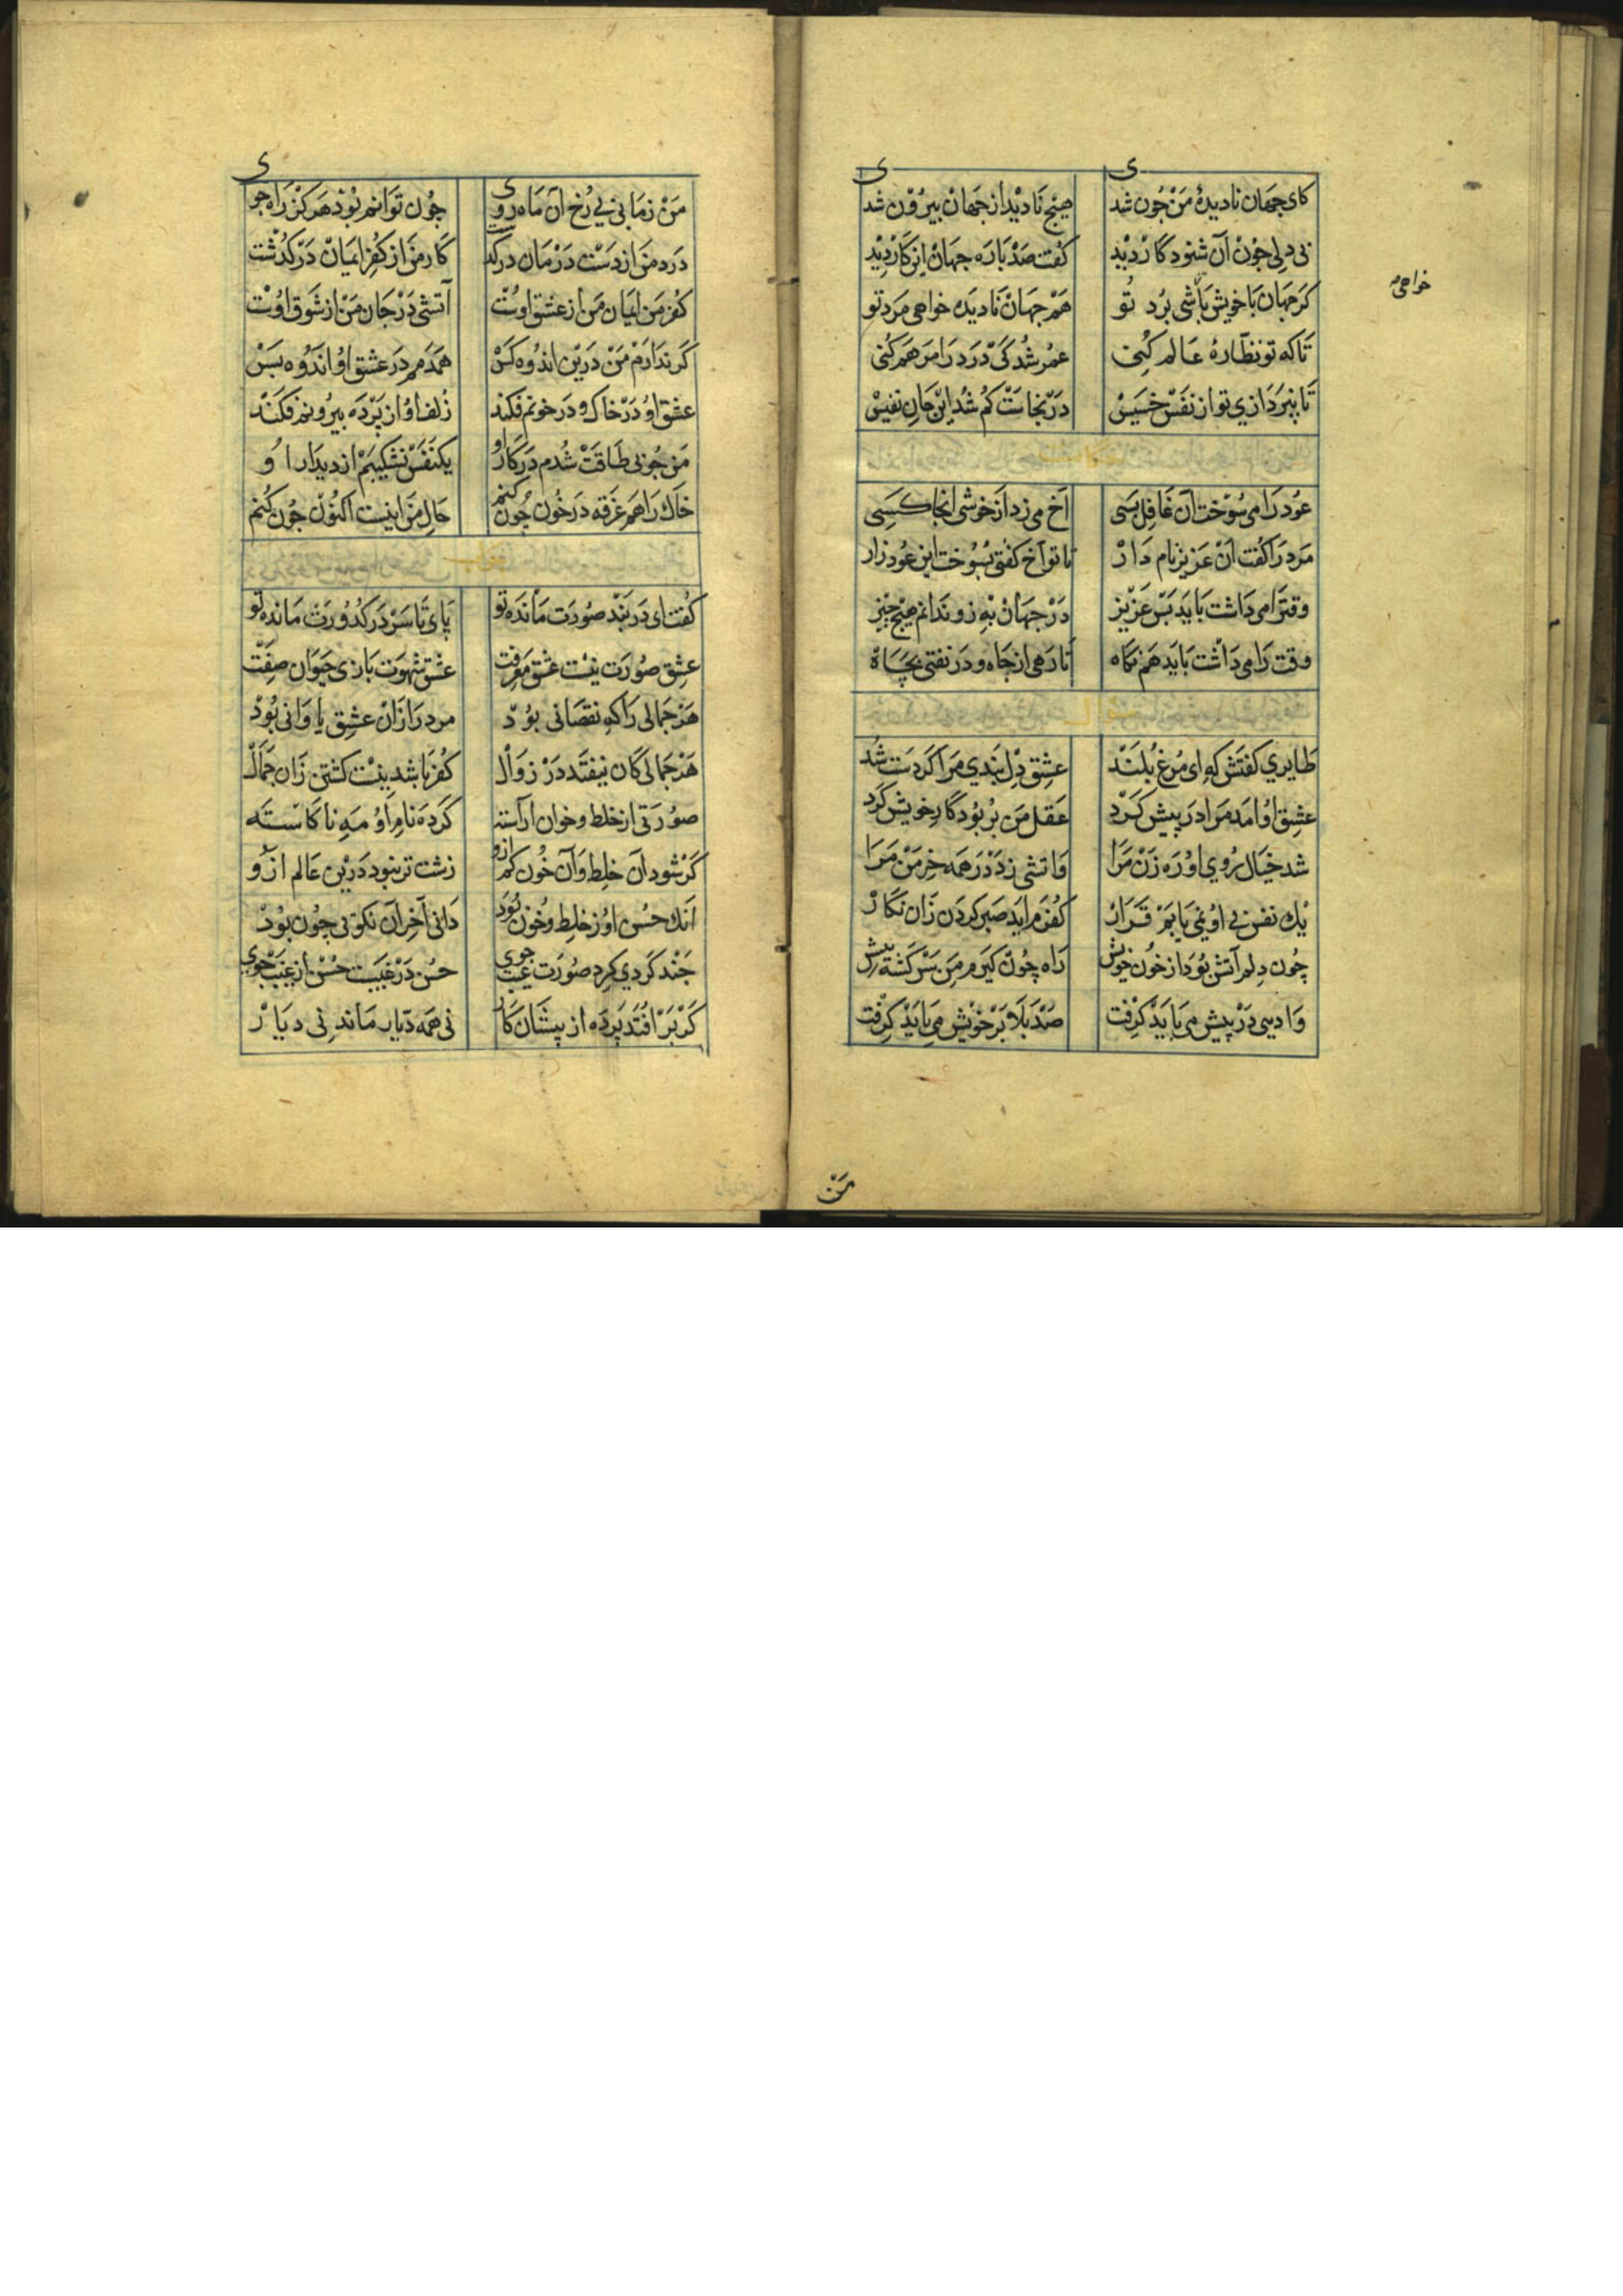 کای جهان نادیدهٔ من چون شد هیچ نادیداز جهان بیرون شد
بی دلی چون آن شنود کار دید کفت صد باره جهان انکار دید
کر جهان با خویش باشی برد تو هم جهان نادیده خواهی مرد تو
خواهی
تا که تو نظّارهٔ عالم کنی عمر شد کی درد را مرهم کنی
تا نپردازی تو از نفس خسیس در نجاست کم شد این جان نفیس
عود را می سوخت آن غافل بسی آخ می زد از خوشی آنجا کسی
مرد را کفت آن عزیز نام دار تا تو آخ کفتی بسوخت این عود زار
وقترا می داشت باید بس عزیز در جهان به زو ندانم هیچ چیز
وقت را می داشت باید هم نکاه تا رهی از جاه و در نفتی بچاه
طایری کفتش که ای مرغ بلند عشق دل بندی مرا کردست شد
عشق او امد مرا در پیش کرد عقل من بربود کار خویش کرد
شد خیال روی او ره زن مرا واتشی زد در همه خرمن مرا
یک نفس بی او نمی یابم قرار کفرم اید صبر کردن زان نکار
چون دلم آتش بود از خون خویش راه چون کیرم من سرکشته پیش
وادیی در پیش می باید کرفت صد بلا بر خویش می باید کرفت
من
من زمانی بی رخ آن ماه روی چون توانم بود هرکز راه جوی
درد من از دست درمان درکذشت کار من از کفر ایمان درکذشت
کفر من ایمان من از عشق اوست آتشی در جان من از شوق اوست
کر ندارم من درین اندوه کس همدمم در عشق او اندوه بس
عشق او در خاک و در خونم فکند زلف او از پرده بیرونم فکند
من چو بی طاقت شدم در کار او یکنفس نشکیبم از دیدار او
خاک راهم غرقه در خون چون کنم حال من اینست اکنون چون کنم
کفت ای در بند صورت مانده تو پای تا سر در کدورت مانده تو
عشق صورت نیست عشق معرفت عشق شهوت بازی حیوان صفت
هر جمالی را که نقصانی بود مرد را زان عشق یاوانی بود
هر جمالی کان نیفتد در زوال کفر باشد نیست کشتن زان جمال
صورتی از خلط و خوان آراسته کرده نام او مه ناکاسته
کر شود آن خلط و آن خون کم ازو زشت تر نبود درین عالم ازو
آنک حسن او ز خلط و خون بود دانی آخر آن نکویی چون بود
چند کردی کرد صورت عیب جوی حسن در غیبست حسن از غیب جوی
کر بر افتد پرده از پیشان کار نی همه دیار ماند نی دیار